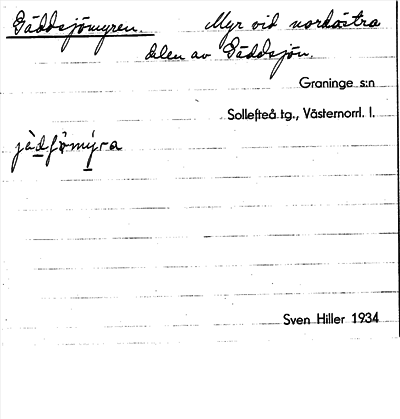 Gäddsjömyren. Myr vid nordöstra
delen av Gäddsjön.
Graninge s:n
Sollefteå tg., Västernorrl. l.
jädʃömýra
Sven Hiller 1934